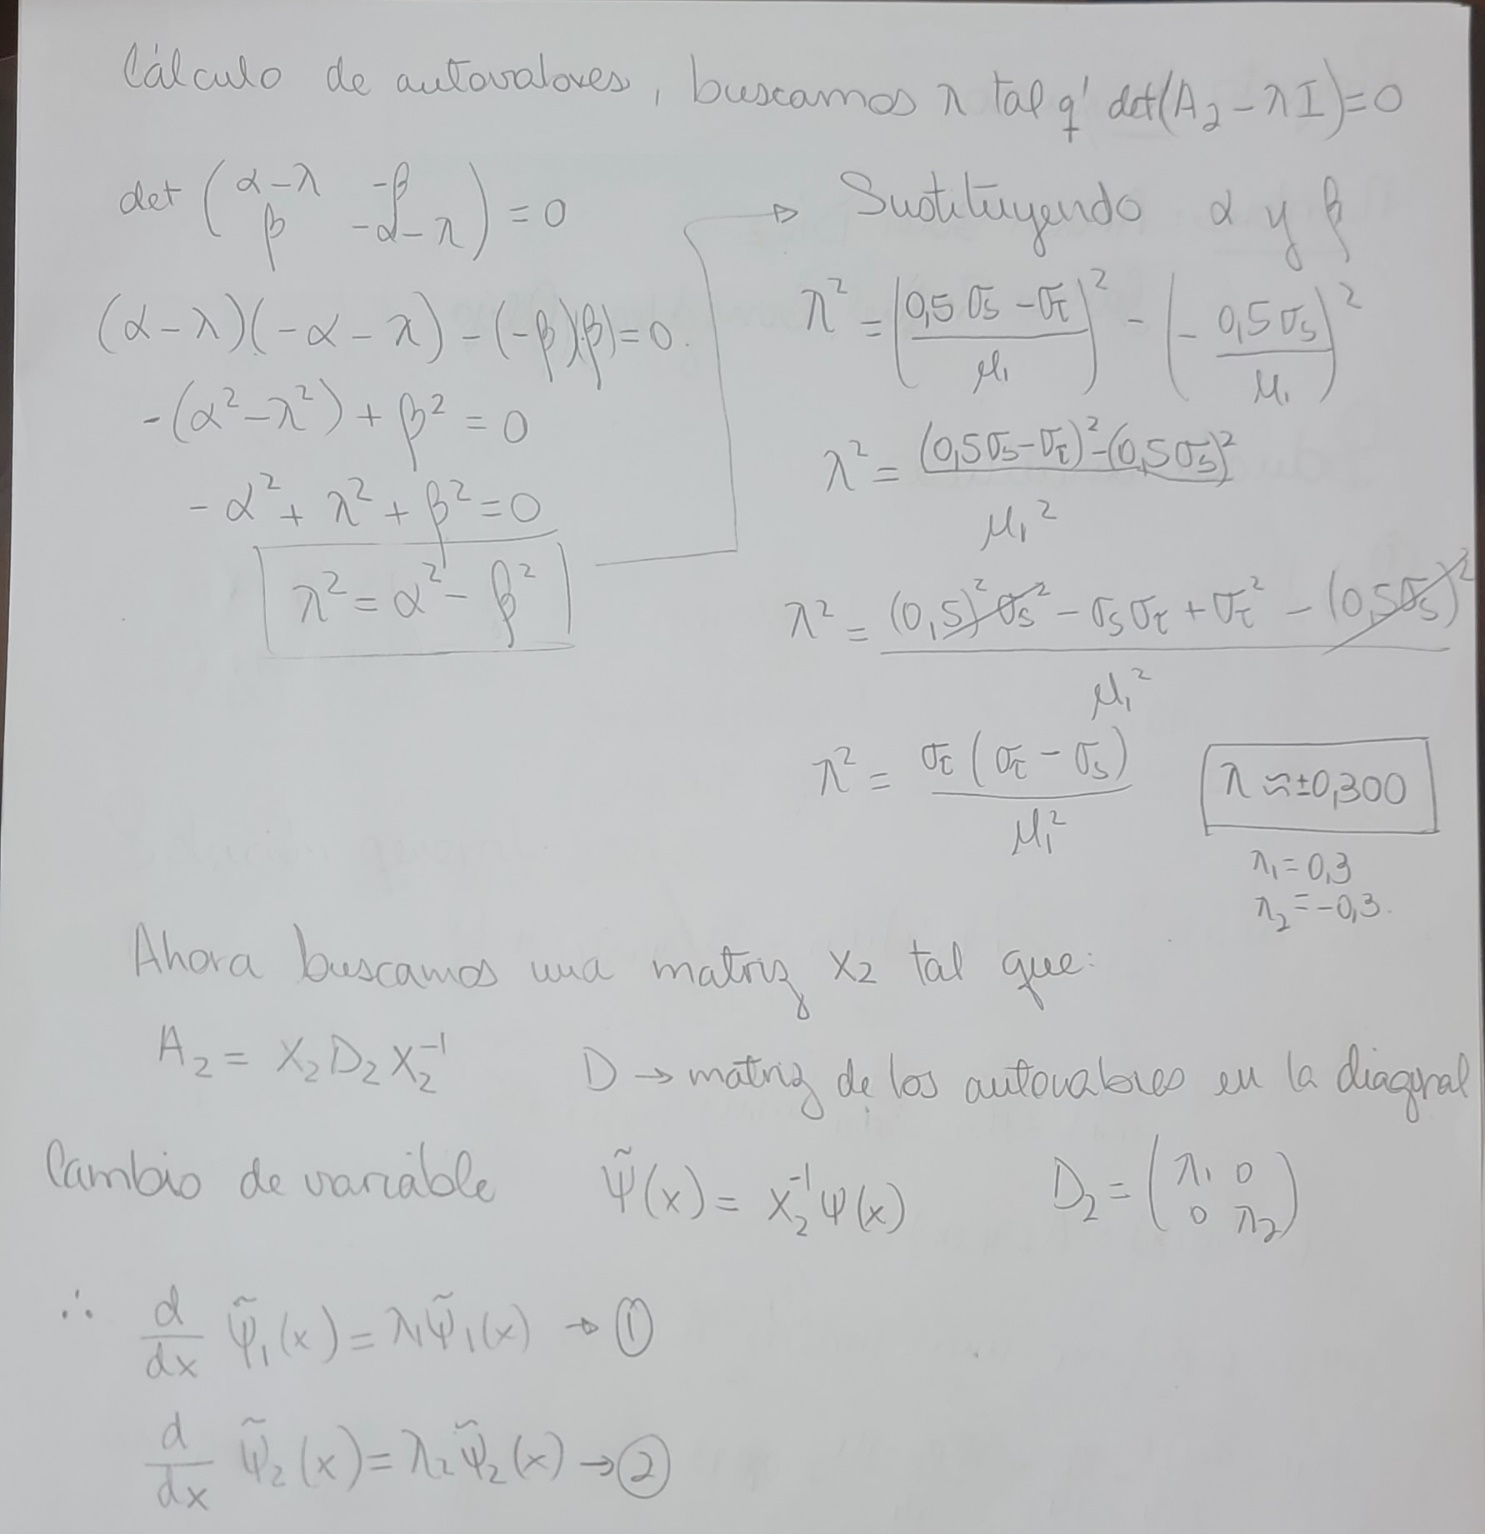 Cálculo de autovalores, buscamos λ tal q' det(A₂ - λI)=0
det ( α-λ  -β ; β  -α-λ ) = 0
(α-λ)(-α-λ) - (-β)(β)=0.
-(α²-λ²) + β² = 0
-α² + λ² + β² = 0
λ² = α² - β²
→ Sustituyendo α y β
λ² = ((0,5σs - σt)/μ₁)² - (-0,5σs/μ₁)²
λ² = ((0,5σs-σt)²-(0,5σs)²)/μ₁²
λ² = ((0,5)²σs² - σsσt + σt² - (0,5σs)²)/μ₁²
λ² = σt(σt - σs)/μ₁²
λ ≈ ±0,300
λ₁ = 0,3
λ₂ = -0,3.
Ahora buscamos una matriz X₂ tal que:
A₂ = X₂D₂X₂⁻¹  D → matriz de los autovalores en la diagonal
Cambio de variable  ψ̃(x) = X₂⁻¹ψ(x)  D₂ = ( λ₁ 0 ; 0 λ₂ )
∴ d/dx ψ̃₁(x) = λ₁ψ̃₁(x) → ①
d/dx ψ̃₂(x) = λ₂ψ̃₂(x) → ②